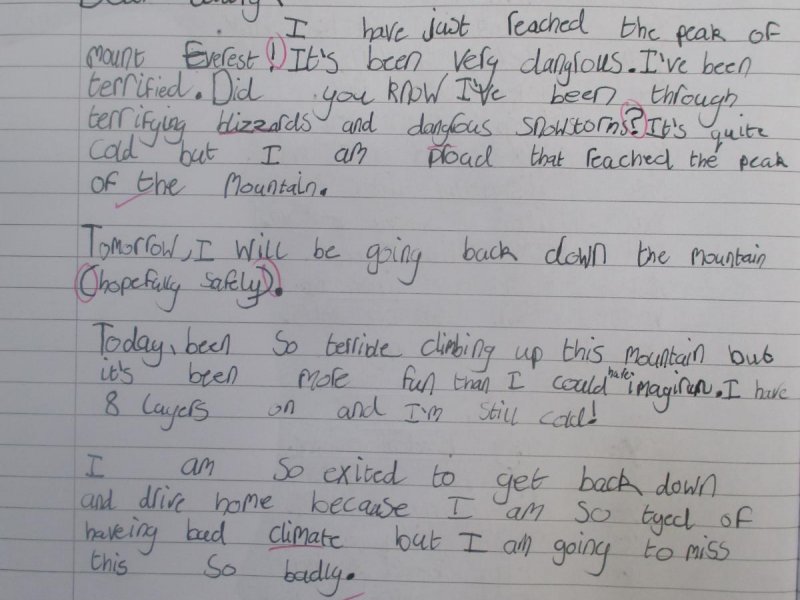 I have just reached the peak of
mount Everest! It's been very dangrous. I've been
terrified. Did you know I've been through
terrifying blizzards and dangrous snowstorms? It's quite
cold but I am proud that reached the peak
of the mountain.
Tomorrow, I will be going back down the mountain
(hopefully safely).
Today, been so terrible climbing up this mountain but
it's been more fun than I could have . I have
8 layers on and I'm still cold!
I am so exited to get back down
and drive home because I am so tyed of
haveing bad climate but I am going to miss
this so badly.